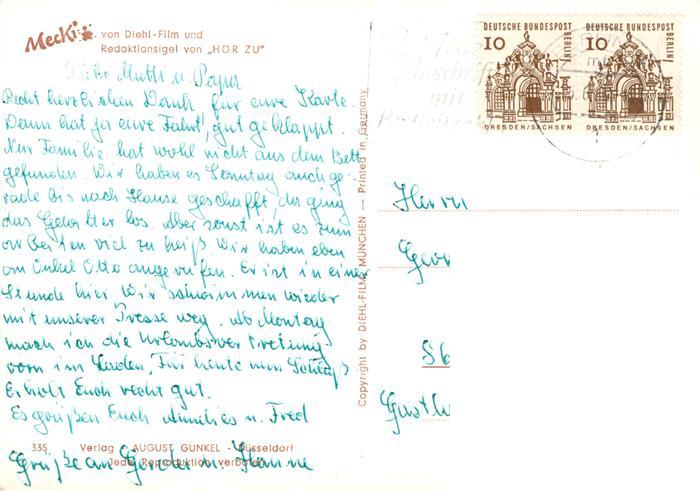 Mecki von Diehl-Film und
Redaktionsigel von „HÖR ZU"
Liebe Mutti u. Papa
Recht herzlichen Dank für eure Karte.
Dann hat ja eure Fahrt gut geklappt.
Familie hat wohl nicht aus dem Bett
gefunden. Wir haben es Sonntag auch ge-
rade bis nach Hause geschafft, da ging
das Gewitter los. Aber sonst ist es zum
arbeiten viel zu heiß. Wir haben eben
Onkel Otto angerufen. Er ist in einer
Stunde hier. Wir schwimmen wieder
mit unserer weg. Ab Montag
mach ich die Urlaubsvertretung
vorn im Laden. Für heute nun Schluß
Erholt Euch recht gut.
Es grüßen Euch u. Fred
335 Verlag AUGUST GUNKEL - Düsseldorf
Jede Reproduktion verboten
Grüße an u. Hanne
Copyright by DIEHL-FILM, MÜNCHEN — Printed in Germany
DEUTSCHE BUNDESPOST BERLIN
10
DRESDEN/SACHSEN
DEUTSCHE BUNDESPOST BERLIN
10
DRESDEN/SACHSEN
Anschrift
mit
Postleitzahl
Herrn
Geor